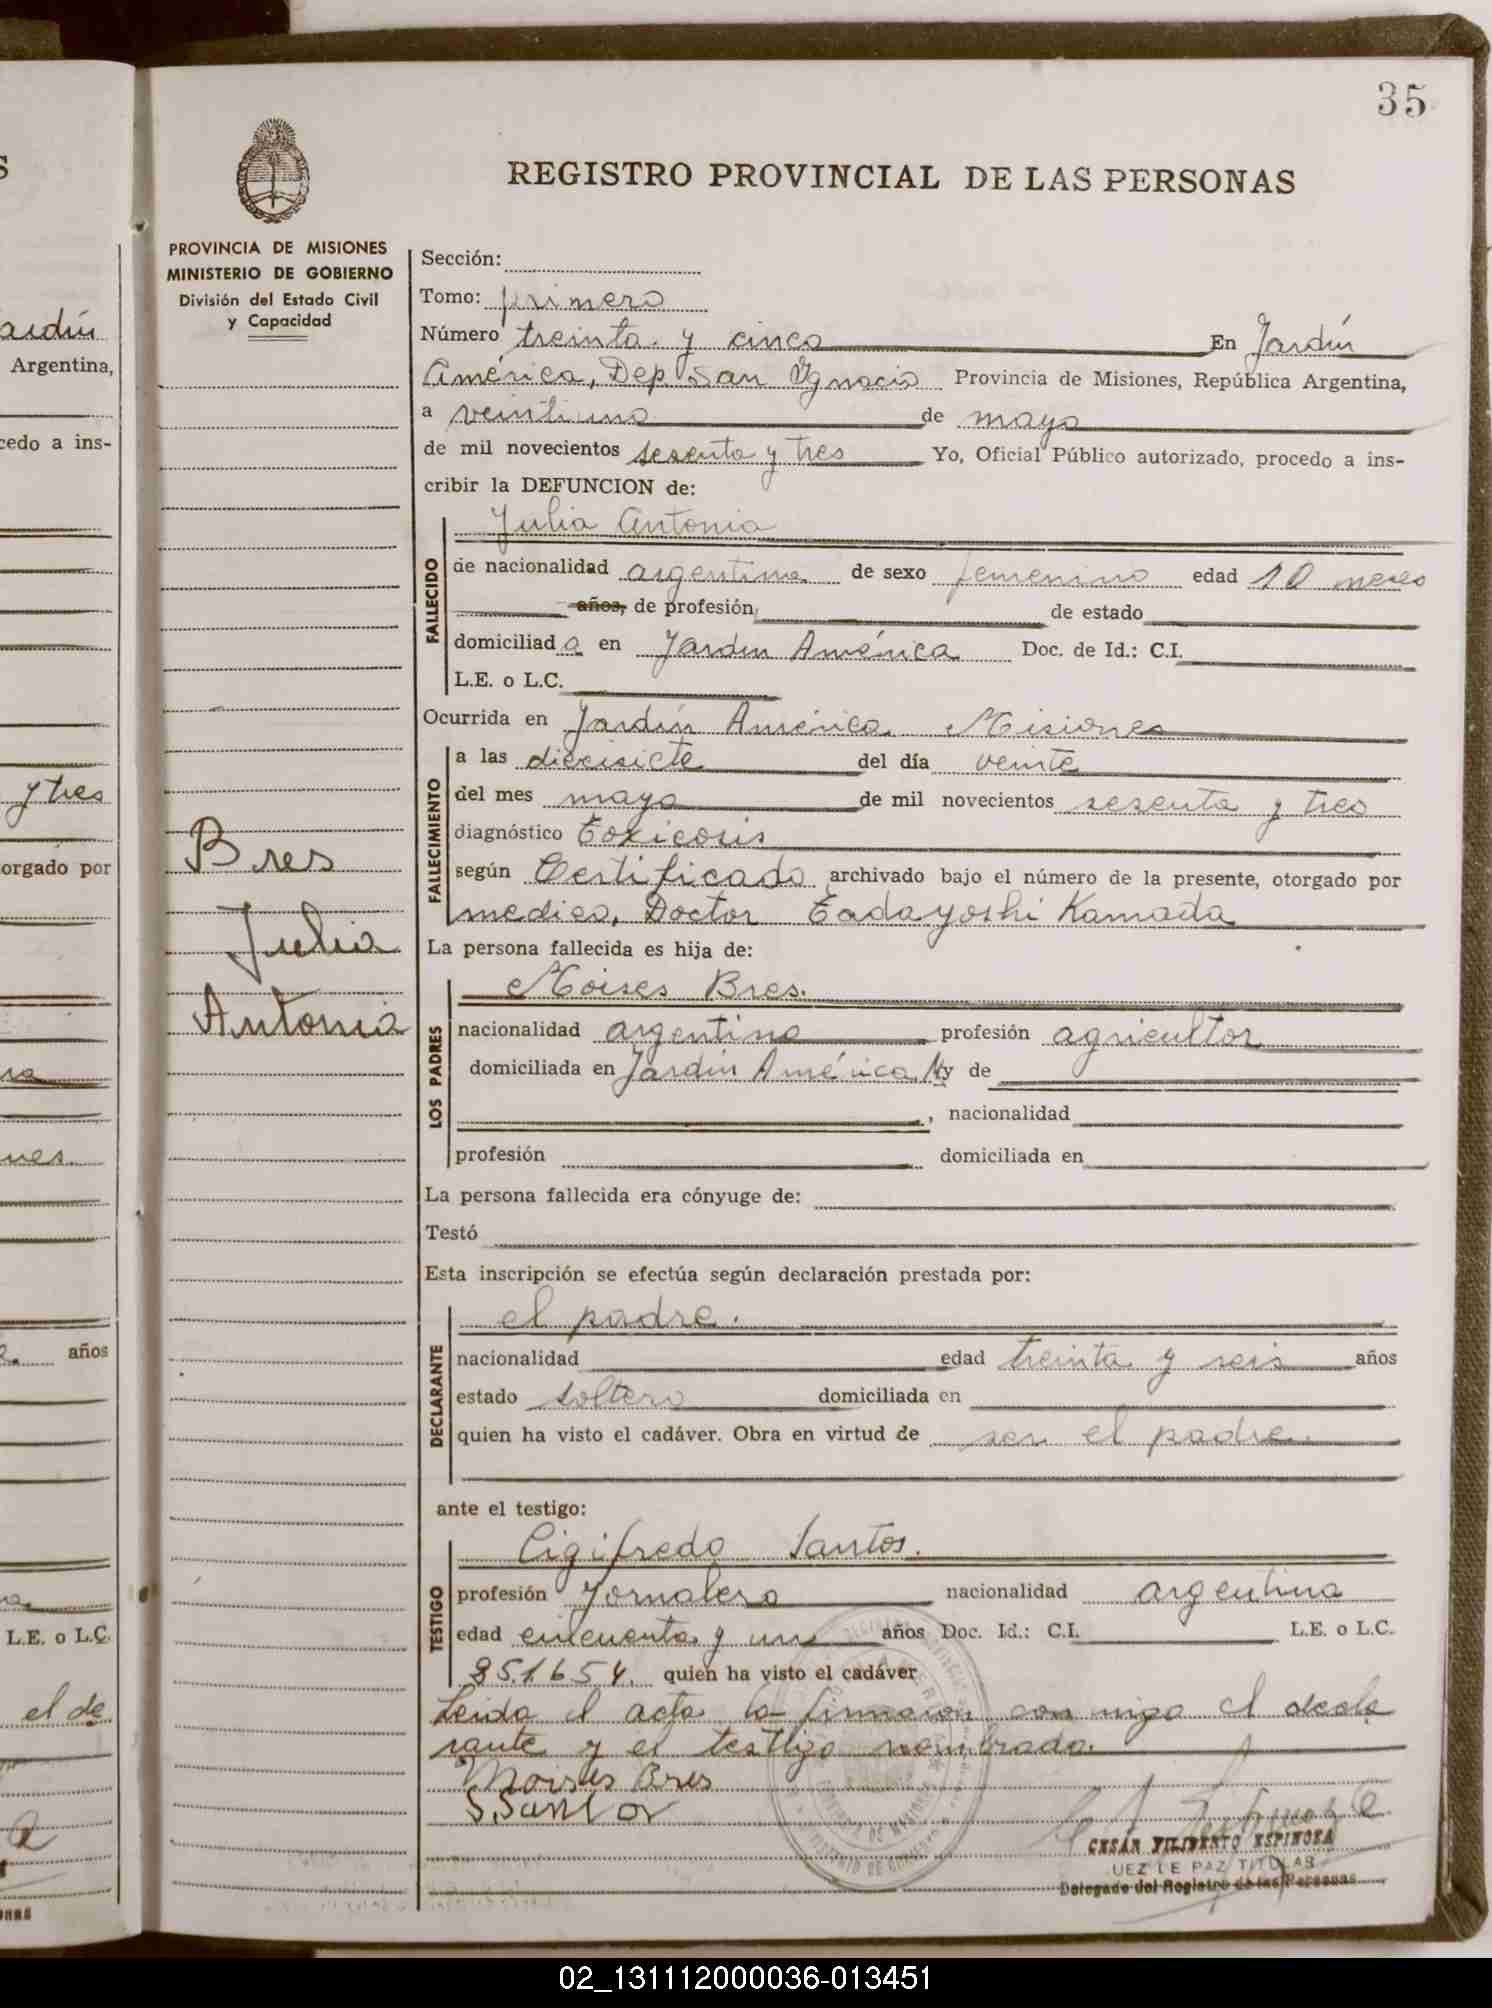 35
REGISTRO PROVINCIAL DE LAS PERSONAS
PROVINCIA DE MISIONES
MINISTERIO DE GOBIERNO
División del Estado Civil
y Capacidad
Bres
Julia
Antonia
Sección:
Tomo: primero
Número treinta y cinco En Jardín
América, Dep. San Ygnacio Provincia de Misiones, República Argentina,
a veintiuno de mayo
de mil novecientos sesenta y tres Yo, Oficial Público autorizado, procedo a ins-
cribir la DEFUNCION de:
FALLECIDO
Julia Antonia
de nacionalidad argentina de sexo femenino edad 10 meses
años, de profesión de estado
domiciliad a en Jardín América Doc. de Id.: C.I.
L.E. o L.C.
Ocurrida en Jardín América Misiones
FALLECIMIENTO
a las diecisiete del día veinte
del mes mayo de mil novecientos sesenta y tres
diagnóstico Toxicosis
según Certificado archivado bajo el número de la presente, otorgado por
medico, Doctor Tadayoshi Kamada
La persona fallecida es hija de:
LOS PADRES
Moises Bres.
nacionalidad argentino profesión agricultor
domiciliada en Jardín América y de
, nacionalidad
profesión domiciliada en
La persona fallecida era cónyuge de:
Testó
Esta inscripción se efectúa según declaración prestada por:
DECLARANTE
el padre.
nacionalidad edad treinta y seis años
estado soltero domiciliada en
quien ha visto el cadáver. Obra en virtud de ser el padre.
ante el testigo:
TESTIGO
Cigifredo Santos.
profesión Jornalero nacionalidad argentina
edad cincuenta y un años Doc. Id.: C.I. L.E. o L.C.
851.654. quien ha visto el cadáver
Leida el acta la firmaron con migo el decla
rante y el testigo nombrado.
Moises Bres
S. Santos
CESAR FILIBERTO ESPINOZA
JUEZ DE PAZ TITULAR
Delegado del Registro de las Personas
ardín
Argentina,
cedo a ins-
y tres
orgado por
años
L.E. o L.C.
el de
02_131112000036-013451